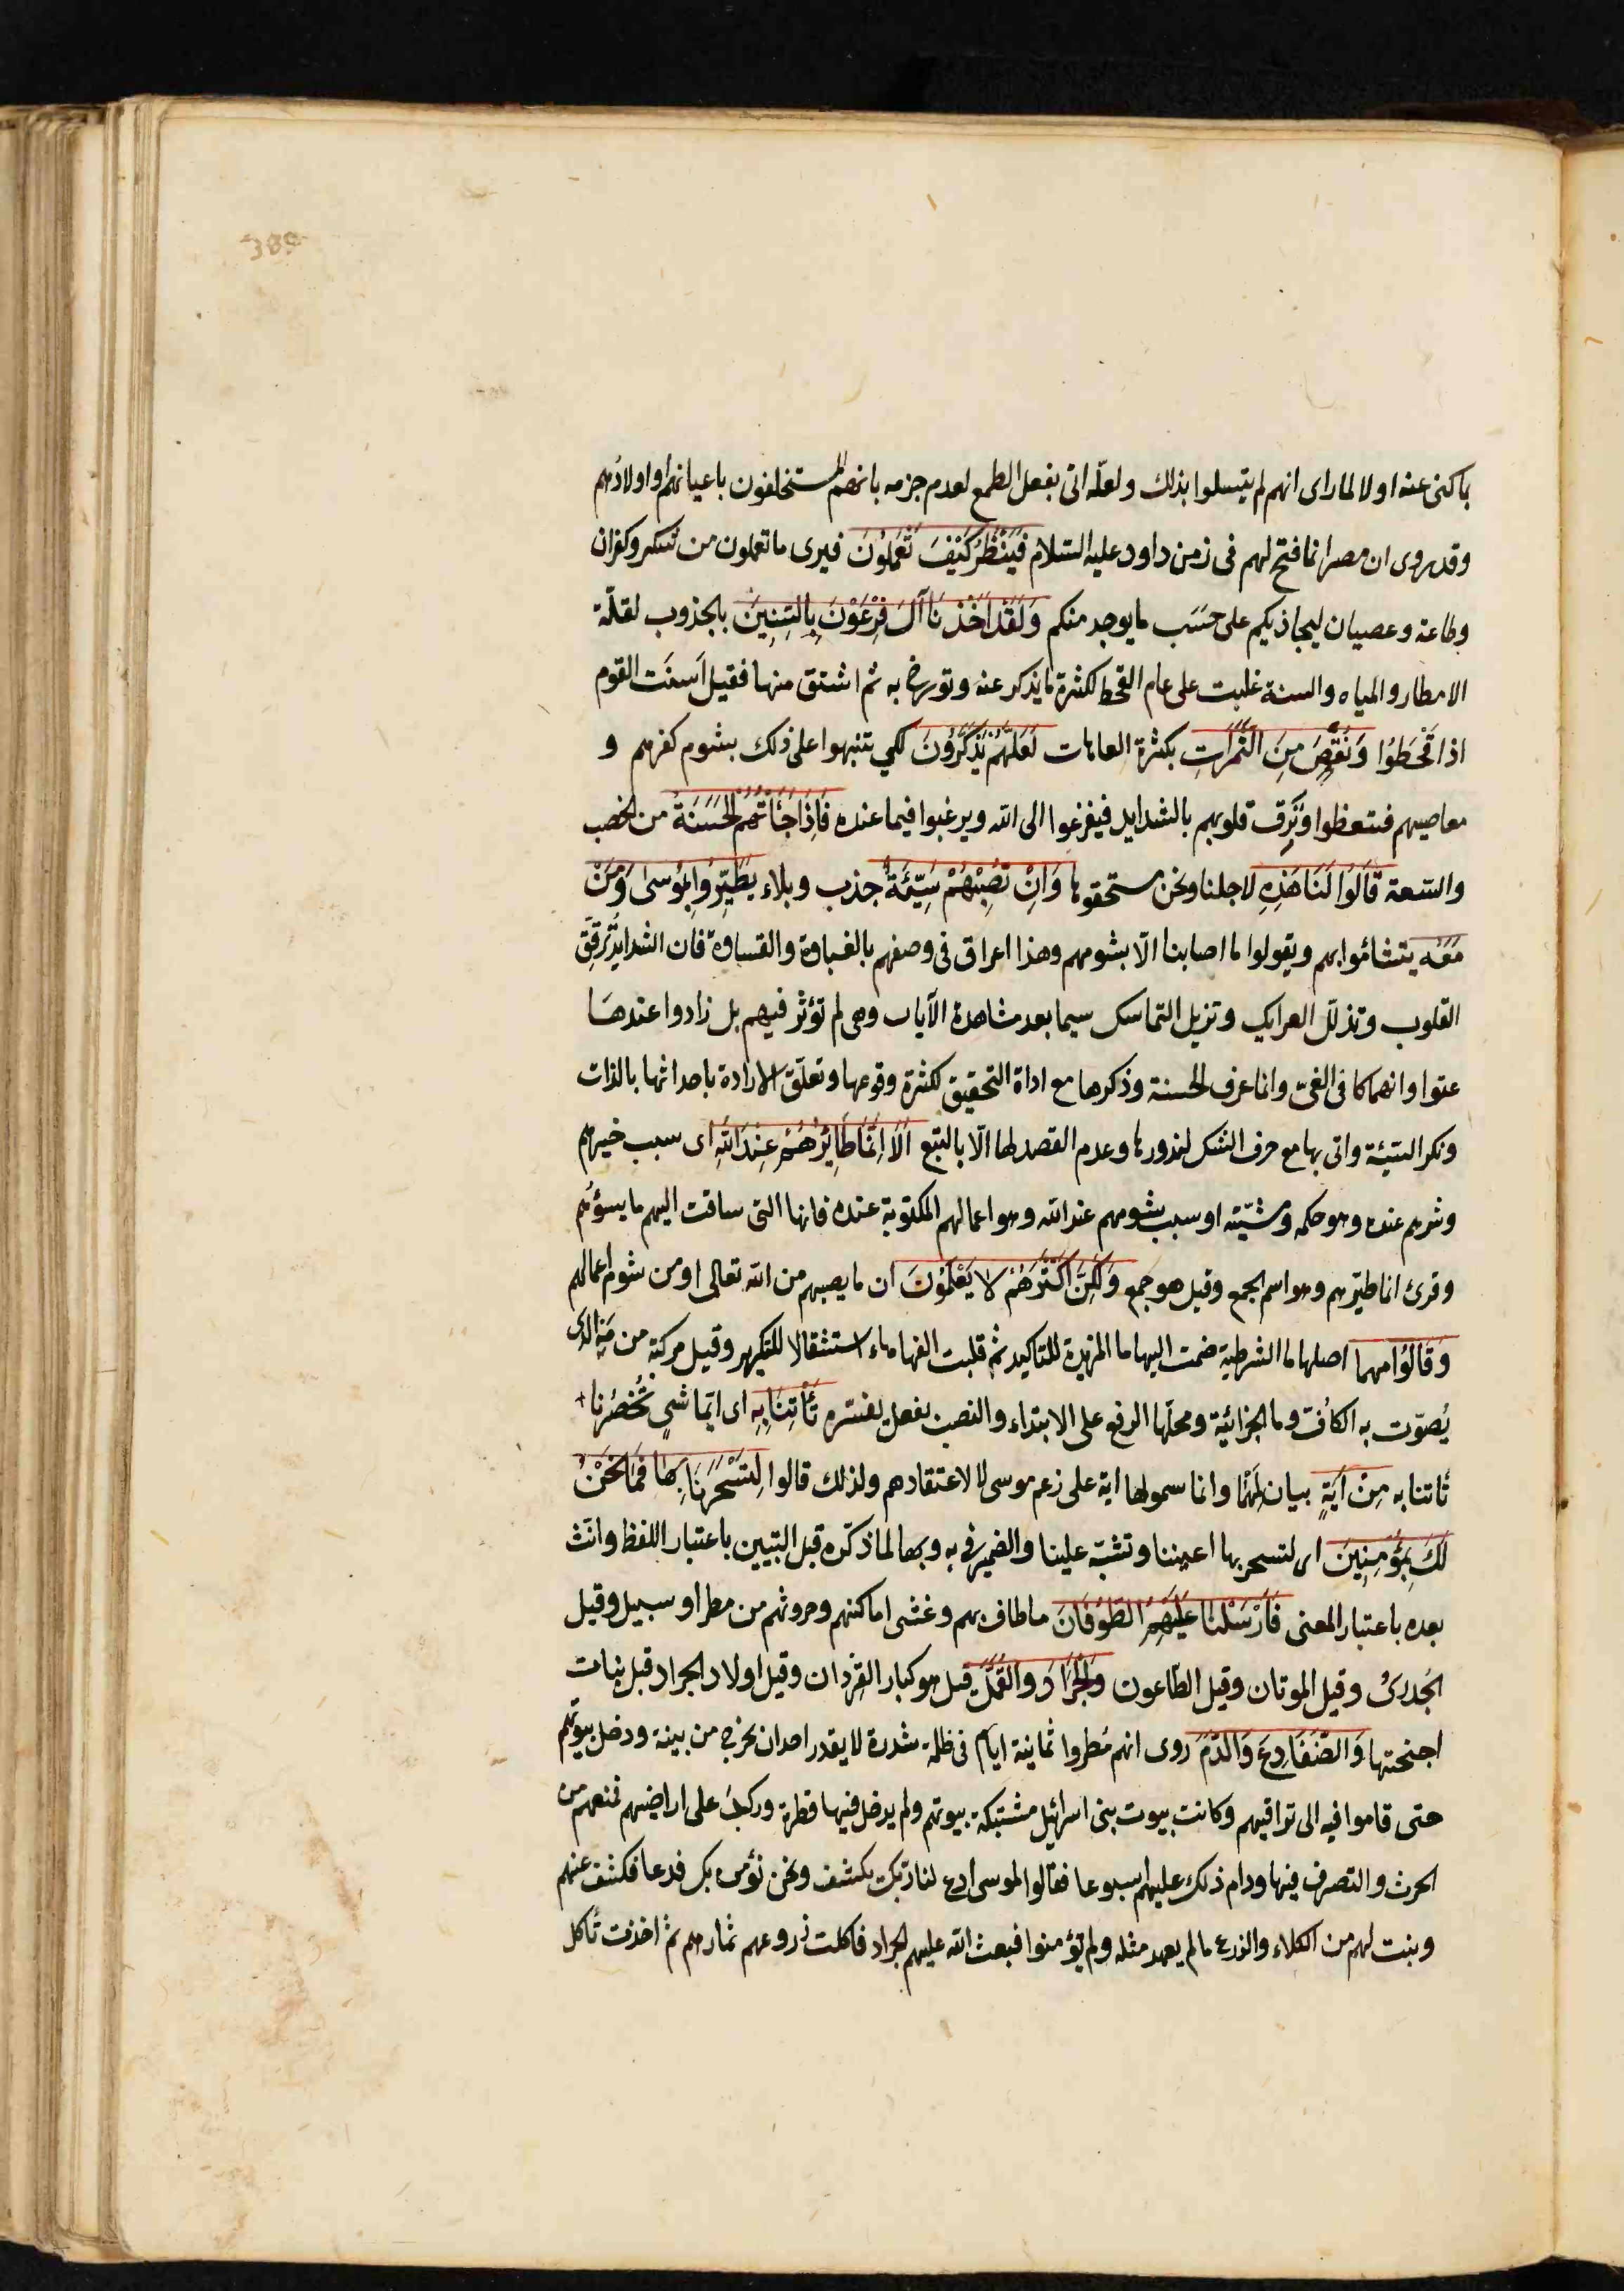 389
با كنى عنه اولا لما راى انهم لم يتسلوا بذلك ولعلّه اتى بفعل الطمع لعدم جزمه بانهم المستخلفون باعيانهم او اولادهم
وقد روى ان مصر انما فتح لهم فى زمن داود عليه السّلام فَيَنْظُرَ كَيْفَ تَعْمَلُوْنَ فيرى ما تعملون من شكر وكفران
وطاعة وعصيان ليجازيكم على حَسَب ما يوجد منكم وَلَقَدْ اَخَذْنَا آلَ فِرْعَوْنَ بِالسِّنِينَ بالجذوب لقلّة
الامطار والمياه والسنة غلبت على عام القحط لكثرة ما يذكر عنه وتورخ به ثم اشتق منها فقيل اَسنَت القوم
اذا قُحَطُوْا وَنَقْصٍ مِنَ الثَّمَرَاتِ بكثرة العاهات لَعَلَّهُمْ يَذَّكَّرُوْنَ لكي يتنبهوا على ذلك بشوم كفرهم و
معاصيهم فيتعظوا وتَرِقّ قلوبهم بالشدايد فيفزعوا الى الله ويرغبوا فيما عنده فَاِذَا جَآءَتْهُمُ الْحَسَنَةُ من الخصب
والسّعة قَالُوْا لَنَا هَذِهِ لاجلنا ونحن مستحقوها وَاِنْ تُصِبْهُمْ سَيِّئَةٌ جذب وبلاء يَطَّيَّرُوْا بِمُوْسَى وَمَنْ
مَعَهُ يتشائموا بهم ويقولوا ما اصابنا الّا بشومهم وهذا اعراق فى وصفهم بالغباوة والقساوة فان الشدايد تُرقِّق
القلوب وتذلّل العرايك وتزيل التماسك سيما بعد مشاهدة الآيات وهى لم تؤثر فيهم بل زادوا عندهَا
عتوا وانهماكا فى الغىّ وانما عرف الحسنة وذكرها مع اداة التحقيق لكثرة وقوعها وتعلّق الارادة باحداثها بالذات
ونكر السّيئة واتى بها مع حرف الشك لندورها وعدم القصد لها الّا بالتبع اَلَا اِنَّمَا طَائِرُهُمْ عِنْدَ اللّٰهِ اى سبب خيرهم
وشرهم عنده وهو حكمه ومشيّته او سبب شومهم عند الله وهو اعمالهم المكتوبة عنده فانها التى ساقت اليهم ما يسؤهم
وقرئ انما طيرهم وهو اسم الجمع وقيل هو جمع وَلَكِنَّ اَكْثَرَهُمْ لَا يَعْلَمُوْنَ ان ما يصيبهم من الله تعالى او من شوم اعمالهم
وَقَالُوْا مهما اصلها ما الشرطية ضمت اليها ما المزيدة للتاكيد ثم قلبت الفها هاء استثقالا للتكرير وقيل مركبة من مَهِ الذى
يُصوّت به الكافّ وما الجزائية ومحلّها الرفع على الابتداء والنصب بفعل يفسّره تَأْتِنَا بِهِ اى ايّما شئ تُحْضِرُنا
تأتنا به مِنْ اٰيَةٍ بيان لِمَهْمَا وانما سموها اية على زعم موسى لا لاعتقادهم ولذلك قالوا لِتَسْحَرَنَا بِهَا فَمَا نَحْنُ
لَكَ بِمُؤْمِنِينَ اى لتسحر بها اعيننا وتشبّه علينا والضمير فى به وبها لما ذكّره قبل التبيين باعتبار اللفظ وانّث
بعده باعتبار المعنى فَاَرْسَلْنَا عَلَيْهِمُ الطُّوْفَانَ ما طاف بهم وغشى اماكنهم وحروثهم من مطر او سيل وقيل
الجُدَرىُ وقيل الموتان وقيل الطّاعون وَالْجَرَادَ وَالْقُمَّلَ قيل هو كبار القِرْدان وقيل اولاد الجراد قبل نبات
اجنحتها وَالضَّفَادِعَ وَالدَّمَ روى انهم مُطروا ثمانية ايام فى ظلمة شديدة لا يقدر احد ان يخرج من بيته ودخل بيوتهم
حتى قاموا فيه الى تراقيهم وكانت بيوت بنى اسرائيل مشتبكة بيوتهم ولم يدخل فيها قطرة وركب على اراضيهم فمنعهم من
الحرث والتصرف فيها ودام ذلك عليهم اسبوعا فقالوا لموسى ادع لنا ربّك يكشف ونحن نؤمن بك فدعا فكشف عنهم
ونبت لهم من الكلاء والزرع ما لم يعهد مثله ولم يؤمنوا فبعث الله عليهم الجراد فاكلت زروعهم ثمارهم ثم اخذت تأكل